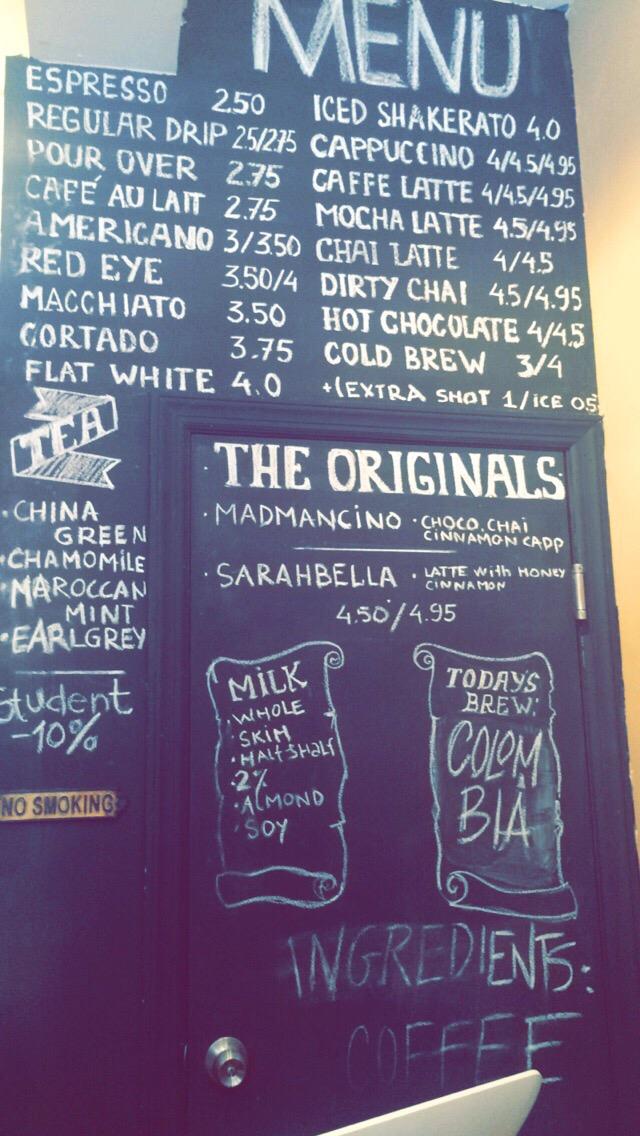 MENU
ESPRESSO 2.50
REGULAR DRIP 2.5/2.75
POUR OVER 2.75
CAFÉ AU LAIT 2.75
AMERICANO 3/3.50
RED EYE 3.50/4
MACCHIATO 3.50
CORTADO 3.75
FLAT WHITE 4.0
ICED SHAKERATO 4.0
CAPPUCCINO 4/4.5/4.95
CAFFE LATTE 4/4.5/4.95
MOCHA LATTE 4.5/4.95
CHAI LATTE 4/4.5
DIRTY CHAI 4.5/4.95
HOT CHOCOLATE 4/4.5
COLD BREW 3/4
+(EXTRA SHOT 1/ICE 05
TEA
·CHINA
GREEN
·CHAMOMILE
·MAROCCAN
MINT
·EARLGREY
Student
-10%
NO SMOKING
·THE ORIGINALS·
·MADMANCINO ·CHOCO.CHAI
CINNAMON CAPP
·SARAHBELLA ·LATTE with HONEY
CINNAMON
4.50/4.95
MILK
·WHOLE
·SKIM
·HALF&HALF
·2%
·ALMOND
·SOY
TODAY'S
BREW:
COLOM
BIA
INGREDIENTS:
COFFEE